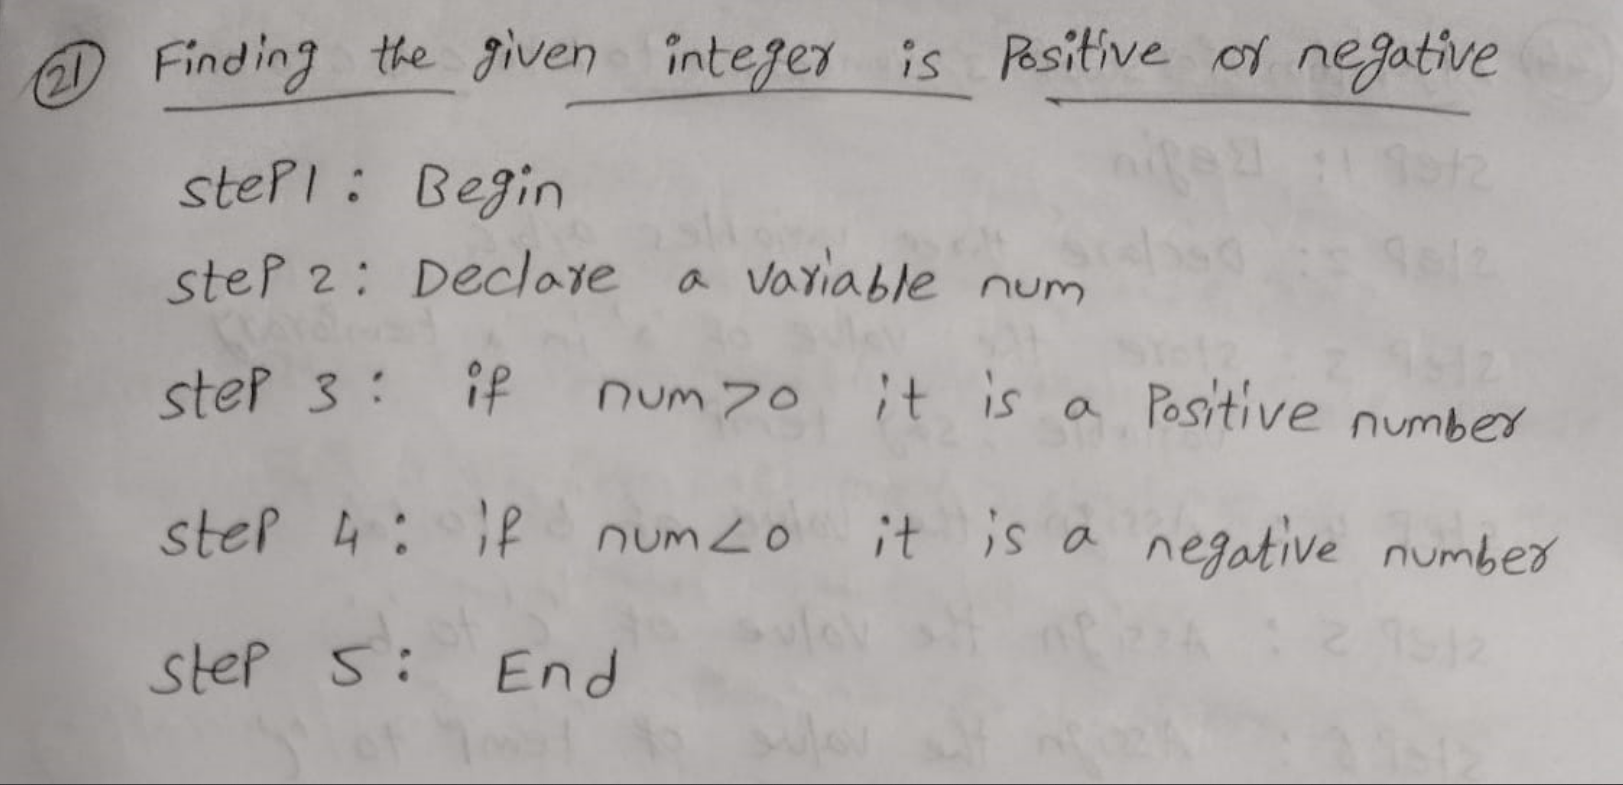 21 Finding the given integer is Positive or negative
step 1 : Begin
step 2 : Declare a variable num
step 3 : if num>0 it is a Positive number
step 4 : if num<0 it is a negative number
step 5 : End